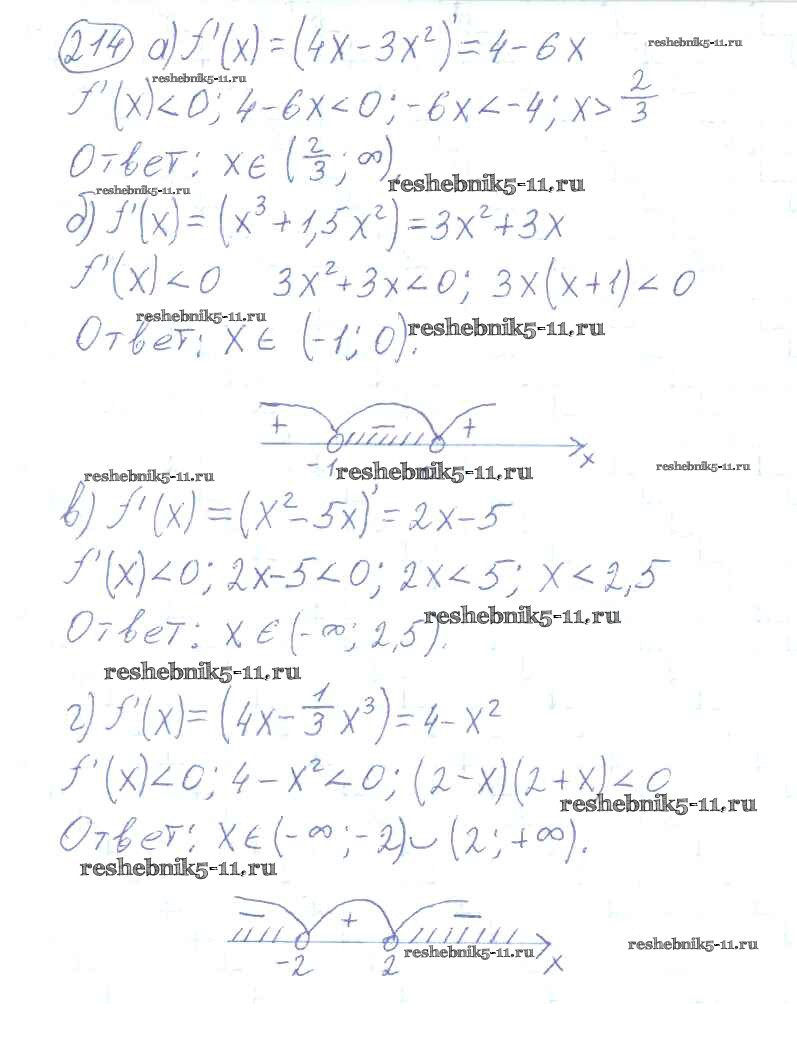 214 а) f'(x) = (4x - 3x²)' = 4 - 6x
reshebnik5-11.ru
reshebnik5-11.ru
f'(x) < 0; 4 - 6x < 0; -6x < -4; x > 2/3
Ответ: x ∈ (2/3; ∞)
reshebnik5-11.ru
reshebnik5-11.ru
б) f'(x) = (x³ + 1,5x²) = 3x² + 3x
f'(x) < 0 3x² + 3x < 0; 3x(x + 1) < 0
reshebnik5-11.ru
reshebnik5-11.ru
Ответ: x ∈ (-1; 0).
+ - +
-1 x
reshebnik5-11.ru
reshebnik5-11.ru
reshebnik5-11.ru
в) f'(x) = (x² - 5x)' = 2x - 5
f'(x) < 0; 2x - 5 < 0; 2x < 5; x < 2,5
reshebnik5-11.ru
Ответ: x ∈ (-∞; 2,5).
reshebnik5-11.ru
г) f'(x) = (4x - 1/3 x³) = 4 - x²
f'(x) < 0; 4 - x² < 0; (2 - x)(2 + x) < 0
reshebnik5-11.ru
Ответ: x ∈ (-∞; -2) ∪ (2; +∞).
reshebnik5-11.ru
- + -
-2 2 x
reshebnik5-11.ru
reshebnik5-11.ru